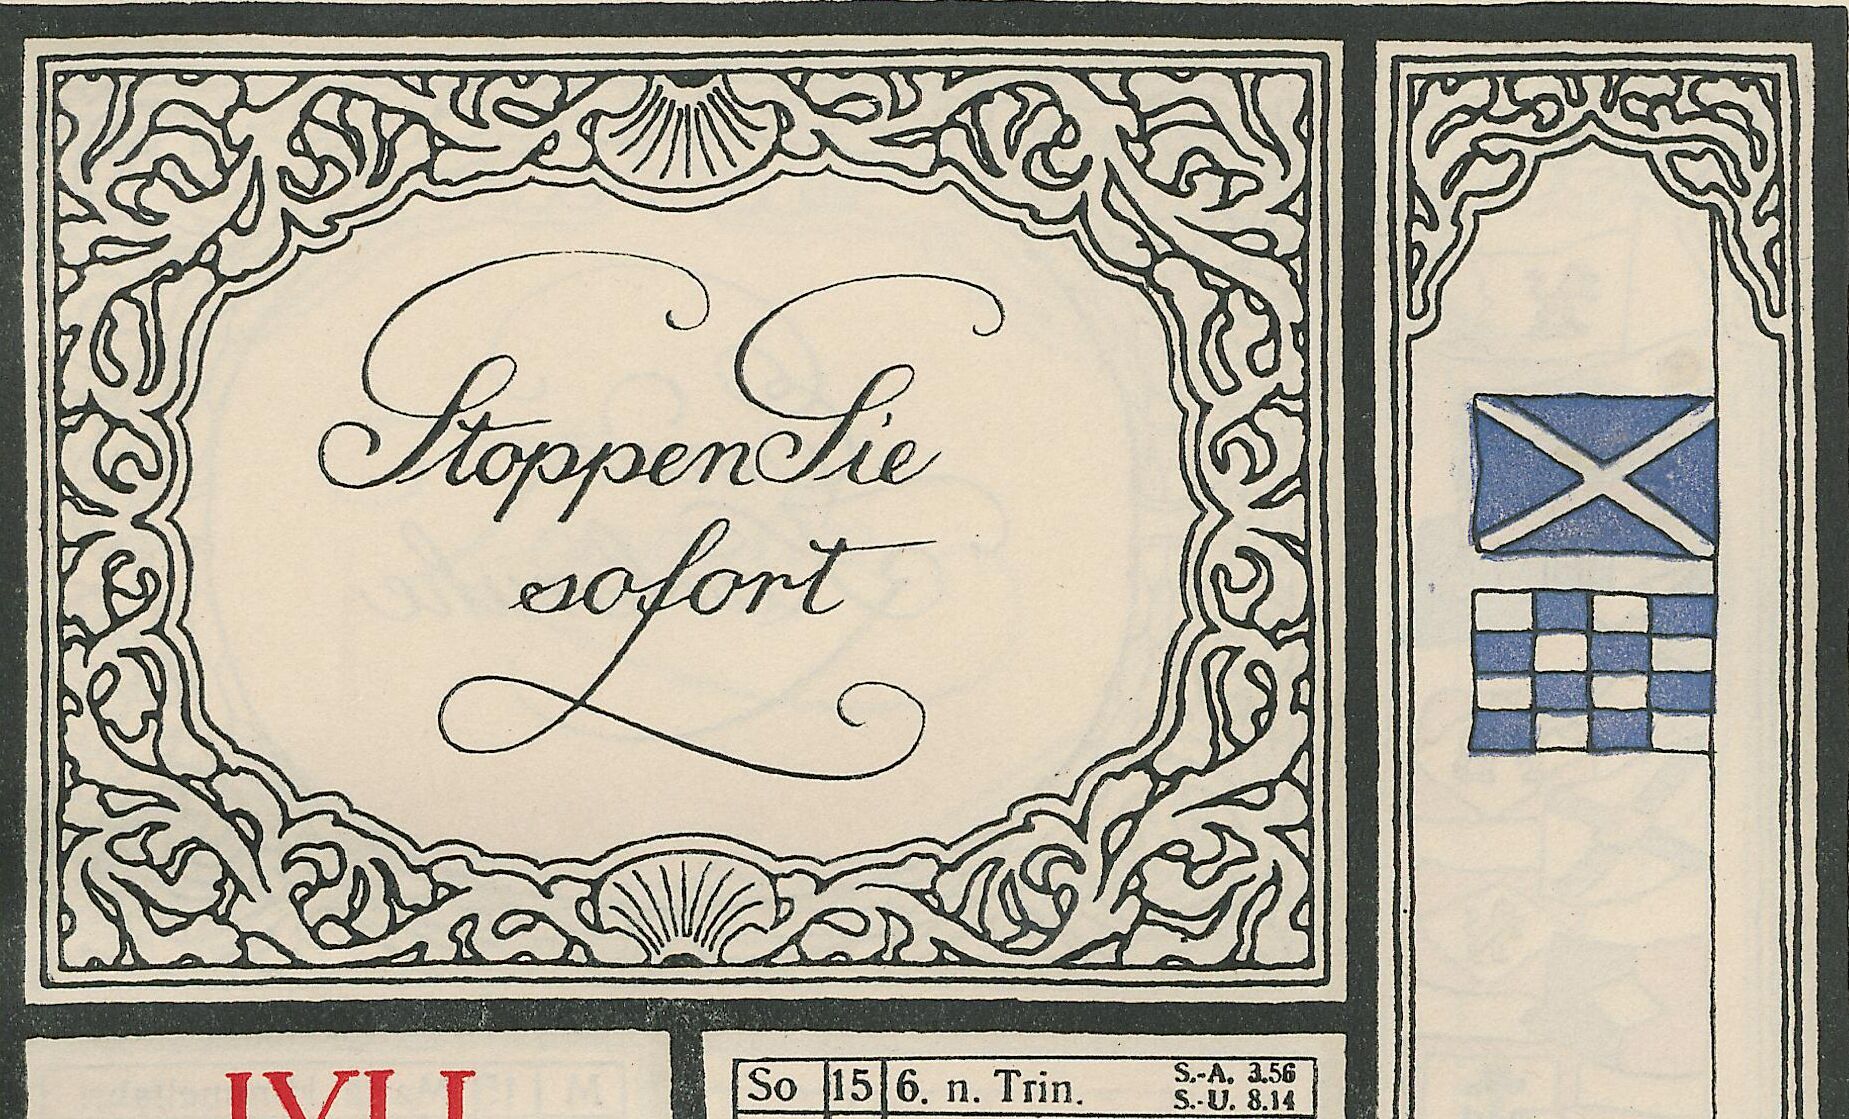 Stoppen Sie
sofort
JVLI
So 15 6. n. Trin. S.-A. 3.56
S.-U. 8.14